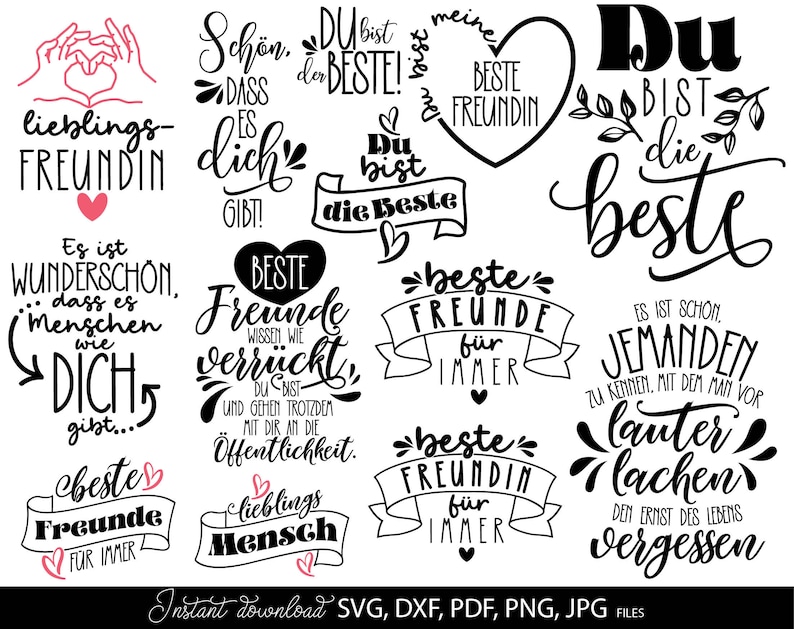 lieblings-
FREUNDIN
Schön,
DASS
ES
dich
GIBT!
DU bist
der
BESTE!
Du bist meine
BESTE
FREUNDIN
Du
bist
die Beste
Du
BIST
die
beste
Es ist
WUNDERSCHÖN,
... dass es
Menschen
wie
DICH
gibt...
BESTE
Freunde
WISSEN WIE
verrückt,
DU BIST
UND GEHEN TROTZDEM
MIT DIR AN DIE
Öffentlichkeit.
beste
FREUNDE
für
IMMER
ES IST SCHÖN,
JEMANDEN
ZU KENNEN, MIT DEM MAN VOR
lauter
lachen
DEN ERNST DES LEBENS
vergessen
beste
Freunde
FÜR IMMER
lieblings
Mensch
beste
FREUNDIN
für
IMMER
Instant download SVG, DXF, PDF, PNG, JPG FILES